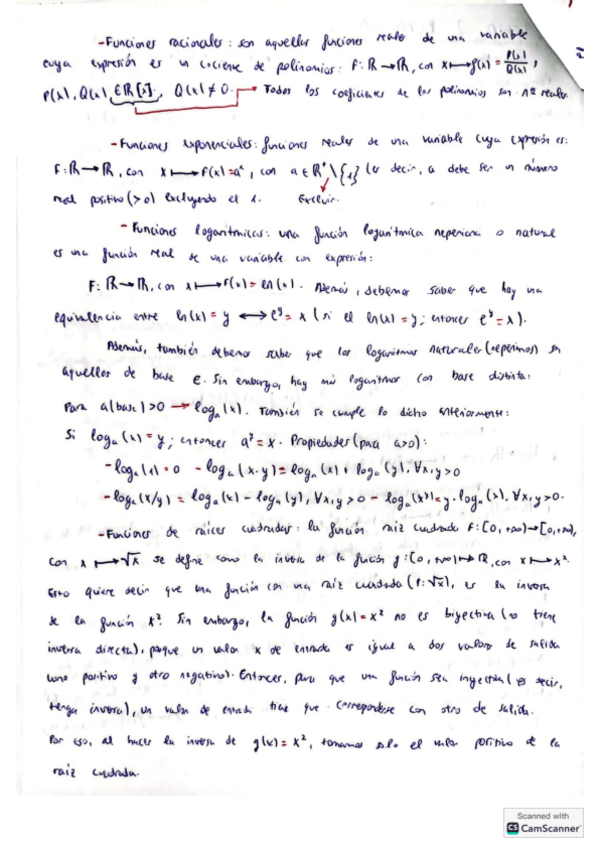 - Funciones racionales: son aquellas funciones reales de una variable
cuya expresión es un cociente de polinomios: F: ℝ → ℝ, con x ↦ f(x) = P(x)/Q(x),
P(x), Q(x) ∈ ℝ[x], Q(x) ≠ 0. → Todos los coeficientes de los polinomios son nº reales
- Funciones exponenciales: funciones reales de una variable cuya expresión es:
F: ℝ → ℝ, con x ↦ F(x) = aˣ, con a ∈ ℝ⁺ \ {1} (es decir, a debe ser un número
real positivo (>0) excluyendo el 1. Excluir.
- Funciones logarítmicas: una función logarítmica neperiana o natural
es una función real de una variable con expresión:
F: ℝ → ℝ, con x ↦ f(x) = ln(x). Además, debemos saber que hay una
equivalencia entre ln(x) = y ⟷ eʸ = x (si el ln(x) = y; entonces eʸ = x).
Además, también debemos saber que los logaritmos naturales (neperianos) son
aquellos de base e. Sin embargo, hay más logaritmos con base distinta:
Para a(base) > 0 → logₐ(x). También se cumple lo dicho anteriormente:
Si logₐ(x) = y; entonces aʸ = x. Propiedades (para a>0):
- logₐ(1) = 0 - logₐ(x·y) = logₐ(x) + logₐ(y), ∀x,y>0
- logₐ(x/y) = logₐ(x) - logₐ(y), ∀x,y>0 - logₐ(xʸ) = y·logₐ(x), ∀x,y>0.
- Funciones de raíces cuadradas: la función raíz cuadrada F: [0,+∞) → [0,+∞),
con x ↦ √x se define como la inversa de la función g: [0,+∞) ↦ ℝ, con x ↦ x².
Esto quiere decir que una función con una raíz cuadrada (f: √x), es la inversa
de la función x². Sin embargo, la función g(x) = x² no es biyectiva (no tiene
inversa directa), porque un valor x de entrada es igual a dos valores de salida
(uno positivo y otro negativo). Entonces, para que una función sea inyectiva (es decir,
tenga inversa), un valor de entrada tiene que corresponderse con otro de salida.
Por eso, al hacer la inversa de g(x) = x², tomamos solo el valor positivo de la
raíz cuadrada.
Scanned with
CS CamScanner